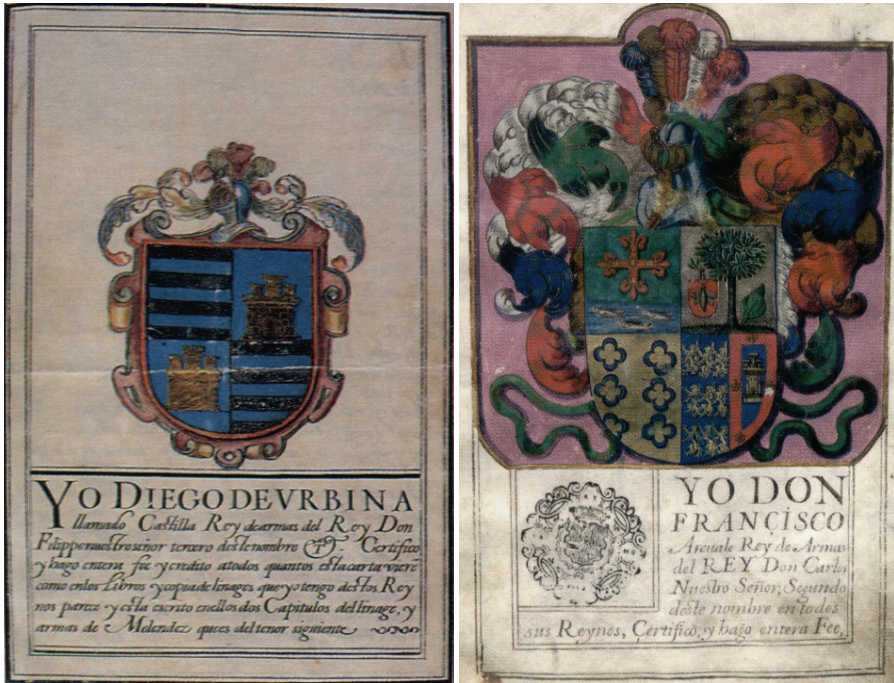 YO DIEGO DE VRBINA
llamado Castilla Rey de armas del Rey Don
Filippe nuestro señor tercero deste nombre &c Certifico
y hago entera fee y credito atodos quantos esta carta vieren
como en los Libros y copia de linages que yo tengo destos Rey
nos parece y esta escrito en ellos dos Capitulos del linage, y
armas de Melendez que es del tenor siguiente
YO DON
FRANCISCO
Areualo Rey de Armas
del REY Don Carlos
Nuestro Señor, Segundo
deste nombre en todos
sus Reynos, Certifico, y hago entera Fee,